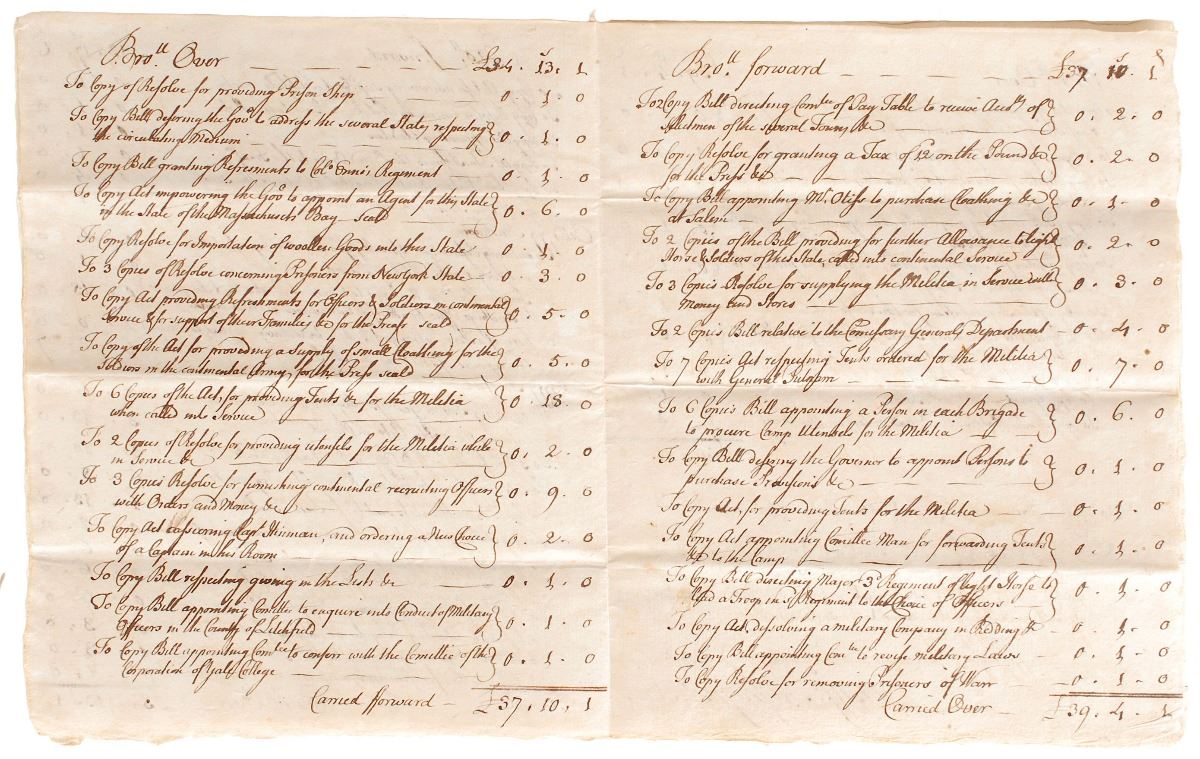 Bro.t Over £34. 13. 1
To Copy of Resolve for providing Prison Ship 0. 1. 0
To Copy Bill desiring the Gov.r to address the several States respecting
the circulating Medium 0. 1. 0
To Copy Bill granting Refreshments to Col.o Enni's Regiment 0. 1. 0
To Copy Act impowering the Gov.r to appoint an Agent for this State
in the State of the Massachusets Bay seald 0. 6. 0
To Copy Resolve for Importation of woollen Goods into this State 0. 1. 0
To 3 Copies of Resolve concerning Prisoners from New York State 0. 3. 0
To Copy Act providing Refreshments for Officers & Soldiers in continental
Service & for support of their Families &c for the Press seald 0. 5. 0
To Copy of the Act for providing a Supply of small Cloathing for the
Soldiers in the continental Army, for the Press seald 0. 5. 0
To 6 Copies of the Act, for providing Tents &c for the Militia
when called into Service 0. 18. 0
To 2 Copies of Resolve for providing utensils for the Militia while
in Service &c 0. 2. 0
To 3 Copies Resolve for furnishing continental recruiting Officers
with Orders and Money &c 0. 9. 0
To Copy Act cashiering Cap.t Hinman, and ordering a New Choice
of a Captain in his Room 0. 2. 0
To Copy Bill respecting giving in the Lists &c 0. 1. 0
To Copy Bill appointing Comittee to enquire into Conduct of Military
Officers in the County of Litchfield 0. 1. 0
To Copy Bill appointing Com.tee to conferr with the Comittee of the
Corporation of Yale College 0. 1. 0
Carried fforward £37. 10. 1
Bro.t forward £37. 10. 1
To Copy Bill directing Com.tee of Pay Table to receive Acc.ts of
Selectmen of the several Towns &c 0. 2. 0
To Copy Resolve for granting a Tax of 12 on the Pound &c
for the Press &c 0. 2. 0
To Copy Bill appointing M.r Otiss to purchase Cloathing &c
at Salem 0. 1. 0
To 2 Copies of the Bill providing for further Allowance to light
Horse & Soldiers of this State, called into continental Service 0. 2. 0
To 3 Copies Resolve for supplying the Militia in Service with
Money and Stores 0. 3. 0
To 2 Copies Bill relative to the Comissary Generals Department 0. 4. 0
To 7 Copies Act respecting Tents ordered for the Militia
with General Putnam 0. 7. 0
To 6 Copies Bill appointing a Person in each Brigade
to procure Camp Utensils for the Militia 0. 6. 0
To Copy Bill desiring the Governor to appoint Persons to
purchase Provisions &c 0. 1. 0
To Copy Act, for providing Tents for the Militia 0. 1. 0
To Copy Act appointing Comittee Man for forwarding Tents
&c to the Camp 0. 1. 0
To Copy Bill directing Major 3.d Regiment of light Horse to
Lead a Troop in s.d Regiment to the Choice of Officers 0. 1. 0
To Copy Act, dissolving a military Company in Redding &c 0. 1. 0
To Copy Bill appointing Com.tee to revise military Laws 0. 1. 0
To Copy Resolve for removing Prisoners of Warr 0. 1. 0
Carried Over £39. 4. 1